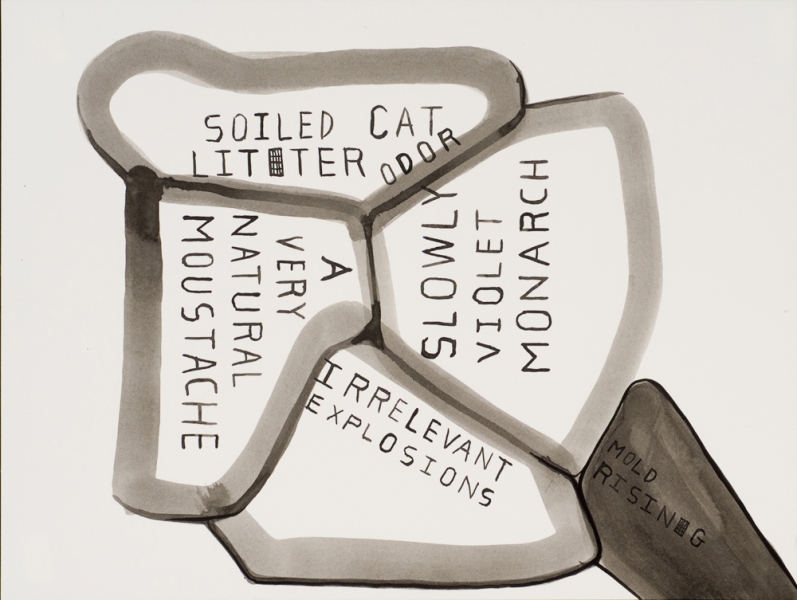 SOILED CAT
LITTER ODOR
A
VERY
NATURAL
MOUSTACHE
SLOWLY
VIOLET
MONARCH
IRRELEVANT
EXPLOSIONS
MOLD
RISING